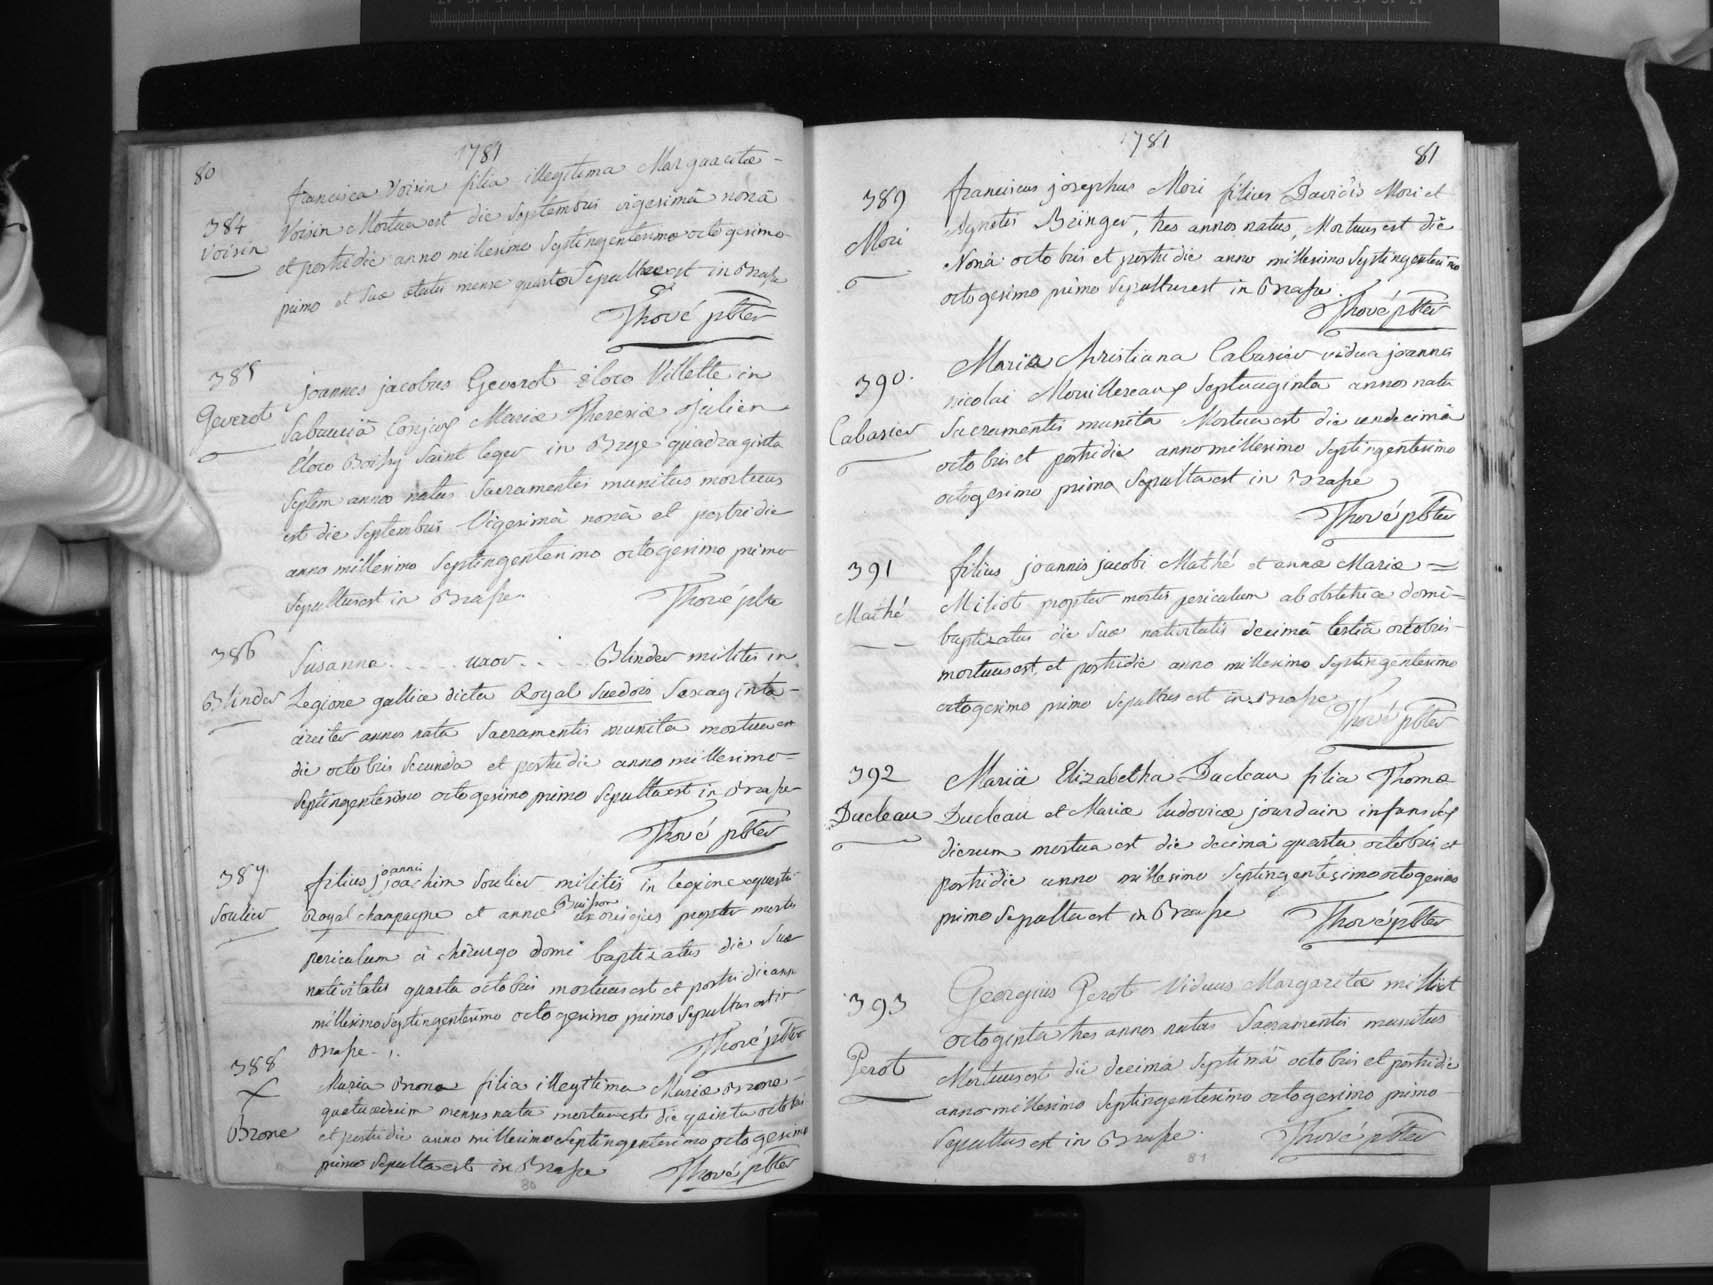 80
1781
384
Voisin
francisca Voisin filia illegitima Margaritæ -
Voisin Mortua est die Septembris vigesimâ nonâ
et postridie anno millesimo Septingentesimo octogesimo
primo et suæ ætatis mense quarto Sepulta est in Brase
Thoré pbter
385
Geverot
joannes jacobus Geverot è loco Villette in
Sabaudiâ Conjux Mariæ Theresiæ Julien
è loco Boissy Saint leger in Brye quadraginta
septem annos natus Sacramentis munitus mortuus
est die Septembris Vigesimâ nonâ et postridie
anno millesimo Septingentesimo octogesimo primo
Sepultus est in Brase.
Thoré pbre
386
Blinder
Susanna . . . . . uxor . . . . Blinder militis in
Legione galliæ dicta Royal Suedois Sexaginta -
circiter annos nata Sacramentis munita mortua est
die octobris Secunda et postridie anno millesimo -
Septingentesimo octogesimo primo Sepulta est in Brase
Thoré pbter
387.
Soulier
joannis
filius joachim Soulier militis in legione equestri
Buisson
Royal champagne et annæ uxoris ejus propter mortis
periculum à chirurgo domi baptizatus die suæ
nativitatis quarta octobris mortuus est et postridie anno
millesimo Septingentesimo octogesimo primo Sepultus est in
Brase.
Thoré pbter
388
X
Brone
Maria Brone filia illegitima Mariæ Brone -
quatuordecim menses nata mortua est die quinta octobris
et postridie anno millesimo Septingentesimo octogesimo
primo Sepulta est in Brase
Thoré pbter
80
1781
81
389
Mori
franciscus josephus Mori filius Davidis Mori et
Agnetis Bringer, tres annos natus, Mortuus est die
Nonâ octobris et postridie anno millesimo Septingentesimo
octogesimo primo Sepultus est in Brase.
Thoré pbter
390.
Cabasier
Maria Christiana Cabasier vidua joannis
nicolai Mouillereaux Septuaginta annos nata
Sacramentis munita Mortua est die undecimâ
octobris et postridie anno millesimo Septingentesimo
octogesimo primo Sepulta est in Brase
Thoré pbter
391
Mathé
filius joannis jacobi Mathé et annæ Mariæ =
Miliot propter mortis periculum ab obstetrice domi -
baptizatus die suæ nativitatis decimâ tertiâ octobris -
mortuus est, et postridie anno millesimo Septingentesimo
octogesimo primo Sepultus est in Brase
Thoré pbter
392
Ducleau
Maria Elizabetha Ducleau filia Thomæ
Ducleau et Mariæ Ludovicæ jourdain infans sex
dierum mortua est die decimâ quarta octobris et
postridie anno millesimo Septingentesimo octogesimo
primo Sepulta est in Brase
Thoré pbter
393
Perot
Georgius Perot Viduus Margaritæ milliet
octoginta tres annos natus Sacramentis munitus
Mortuus est die decimâ Septimâ octobris et postridie
anno millesimo Septingentesimo octogesimo primo -
Sepultus est in Brase.
Thoré pbter
81